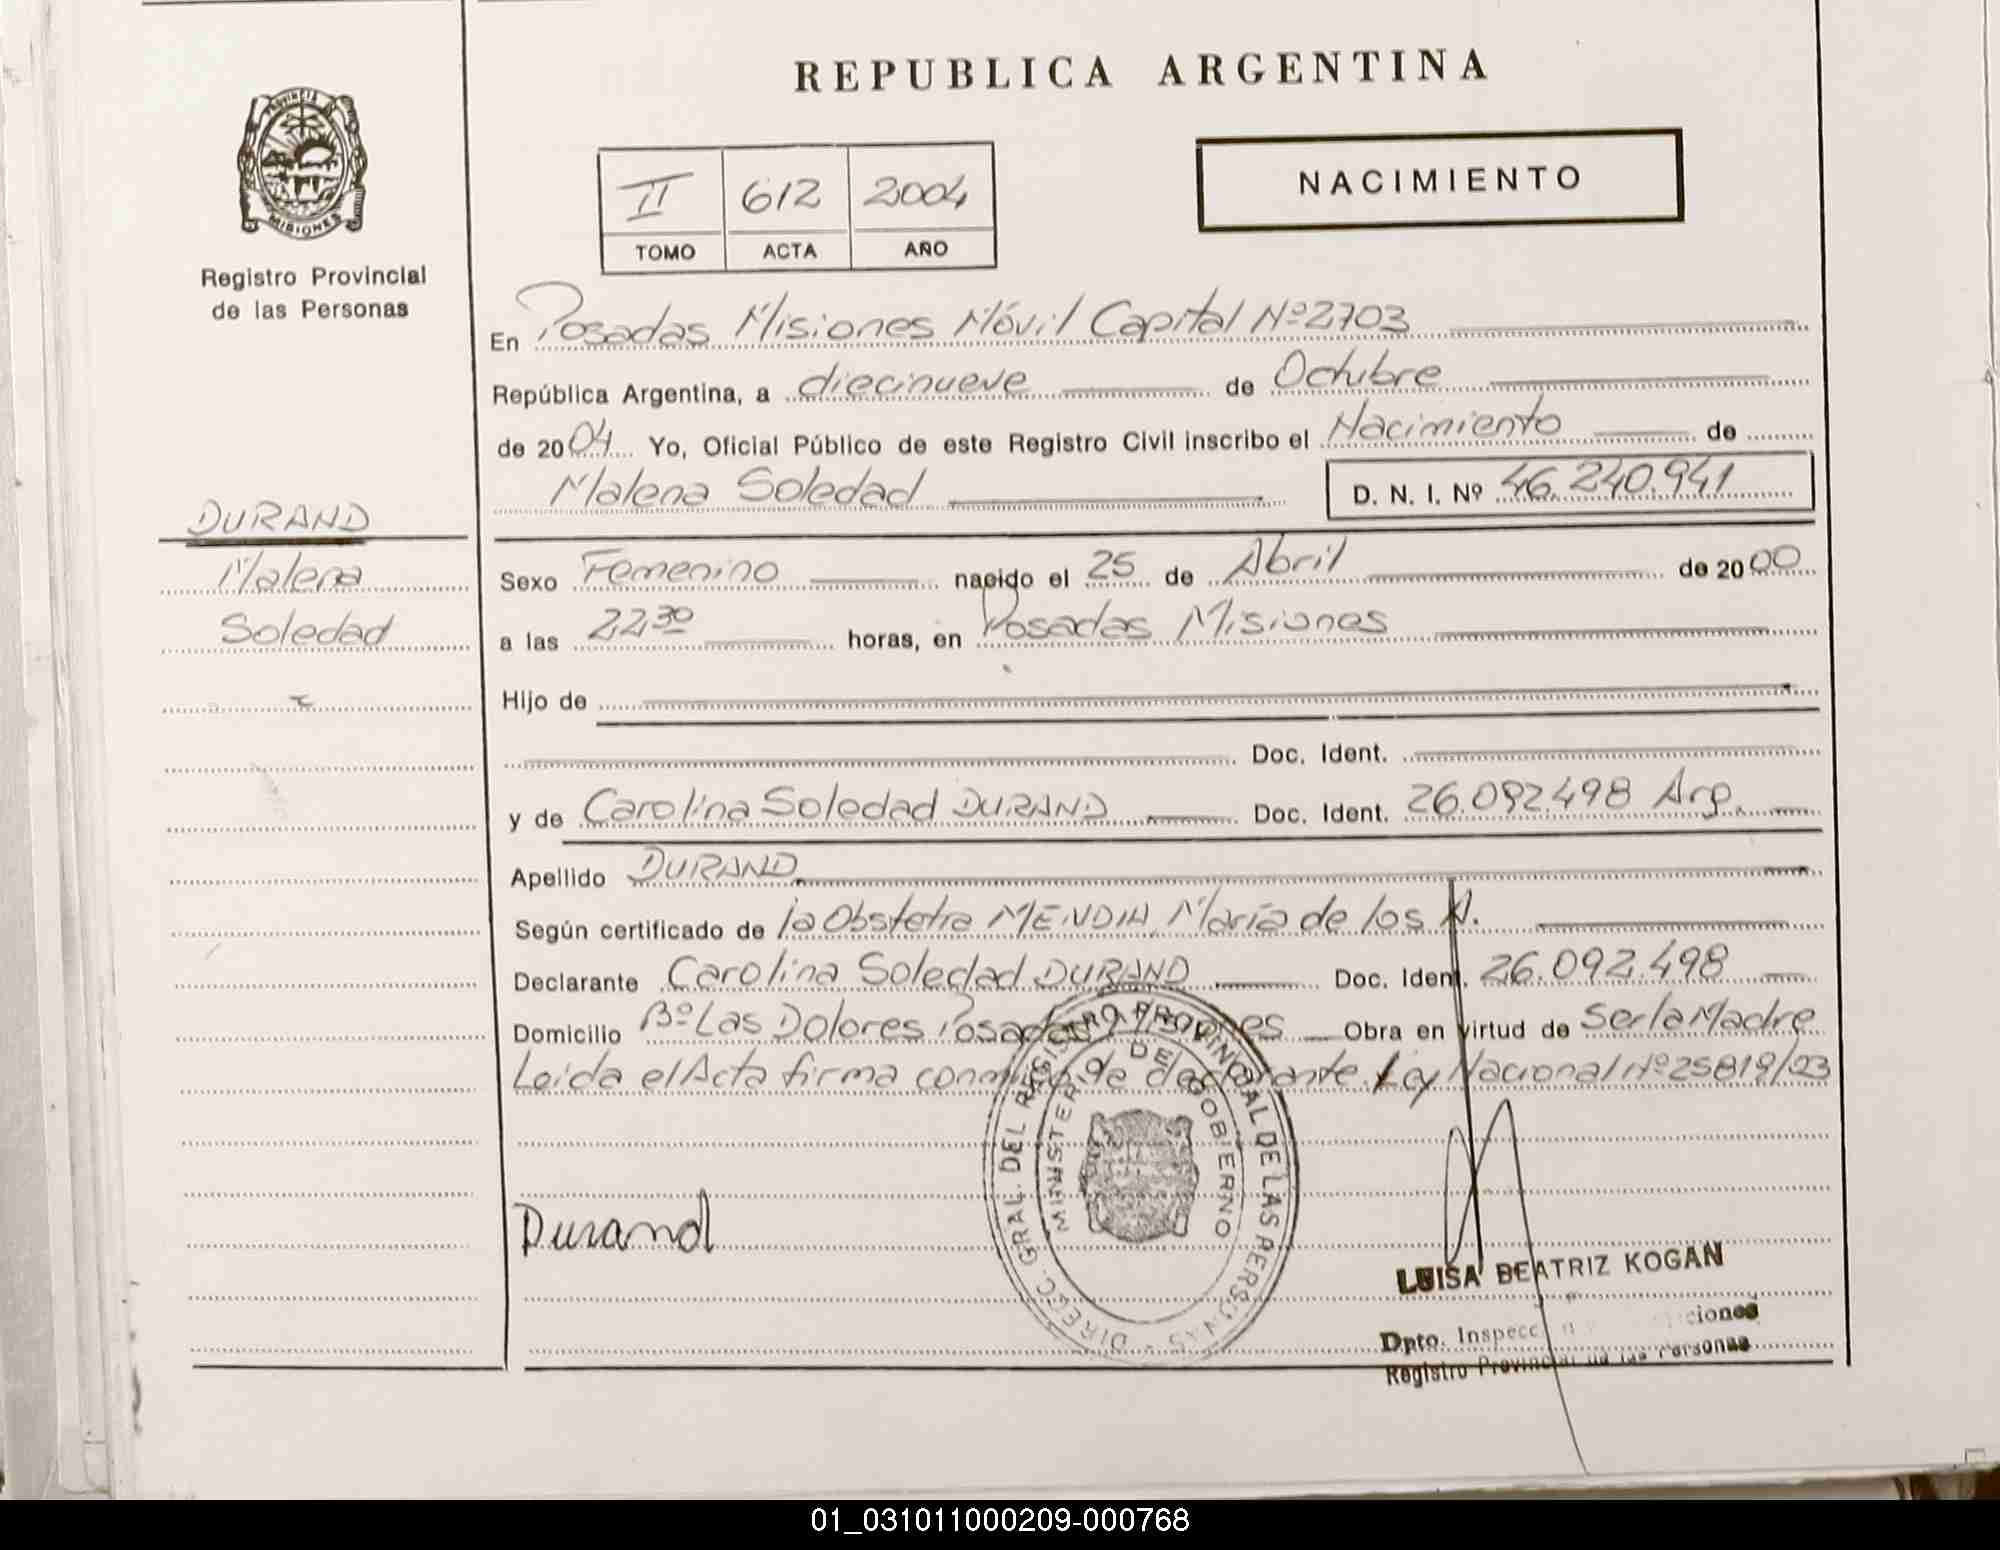 REPUBLICA ARGENTINA
PROVINCIA DE
MISIONES
Registro Provincial
de las Personas
II 612 2004
TOMO ACTA AÑO
NACIMIENTO
En Posadas Misiones Móvil Capital Nº 2703
República Argentina, a diecinueve de Octubre
de 2004 Yo, Oficial Público de este Registro Civil inscribo el Nacimiento de
Malena Soledad D. N. I. Nº 46.240.941
DURAND
Malena
Soledad
Sexo Femenino nacido el 25 de Abril de 2000
a las 22 30 horas, en Posadas Misiones
Hijo de
Doc. Ident.
y de Carolina Soledad DURAND Doc. Ident. 26.092.498 Arg.
Apellido DURAND
Según certificado de la Obstetra MENDIA María de los A.
Declarante Carolina Soledad DURAND Doc. Ident. 26.092.498
Domicilio Bº Las Dolores Posadas Misiones Obra en virtud de Ser la Madre
Leida el Acta firma conmigo de declarante. Ley Nacional Nº 25819/03
Durand
DIREC. GRAL. DEL REGISTRO PROVINCIAL DE LAS PERSONAS
MINISTERIO DE GOBIERNO
LUISA BEATRIZ KOGAN
Dpto. Inspecc
Registro Provincial de las Personas
01_031011000209-000768